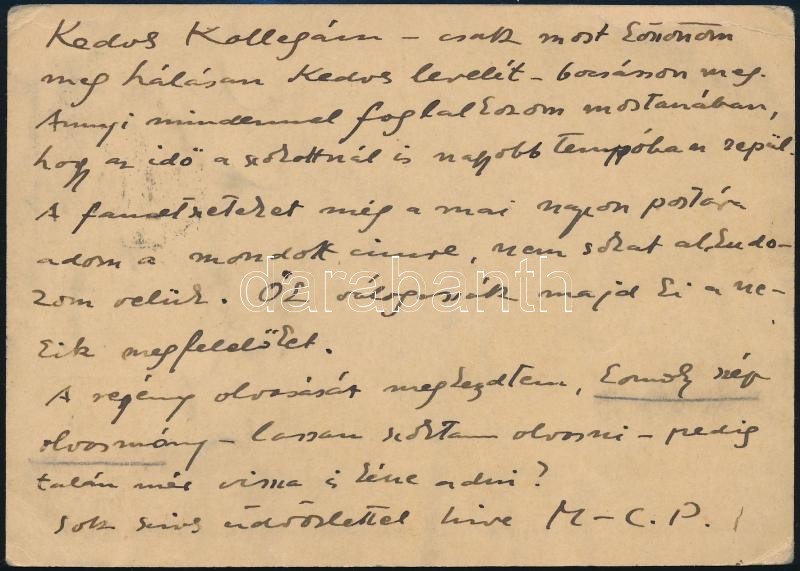 Kedves Kollegám – csak most köszönöm
meg hálásan kedves levelét – bocsásson meg.
Annyi mindennel foglalkozom mostanában,
hogy az idő a szokottnál is nagyobb tempóban repül.
A fametszeteket még a mai napon postára
adom a mondott címre, nem sokat alkudo-
zom velük. Ők válogassák majd ki a ne-
kik megfelelőket.
A regény olvasását megkezdtem, komoly szép
olvasmány – lassan szoktam olvasni – pedig
talán már vissza is kéne adni?
Sok szives üdvözlettel hive M–C. P.
darabanth